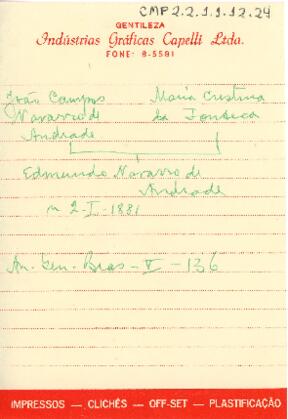 CMP 2.2.1.1.12.24
GENTILEZA
Indústrias Gráficas Capelli Ltda.
FONE: 8-5581
João Campos Maria Cristina
Navarro de da Fonseca
Andrade
Edmundo Navarro de
Andrade
n 2-I-1881
An. Gen. Bras - V - 136
IMPRESSOS — CLICHÊS — OFF-SET — PLASTIFICAÇÃO